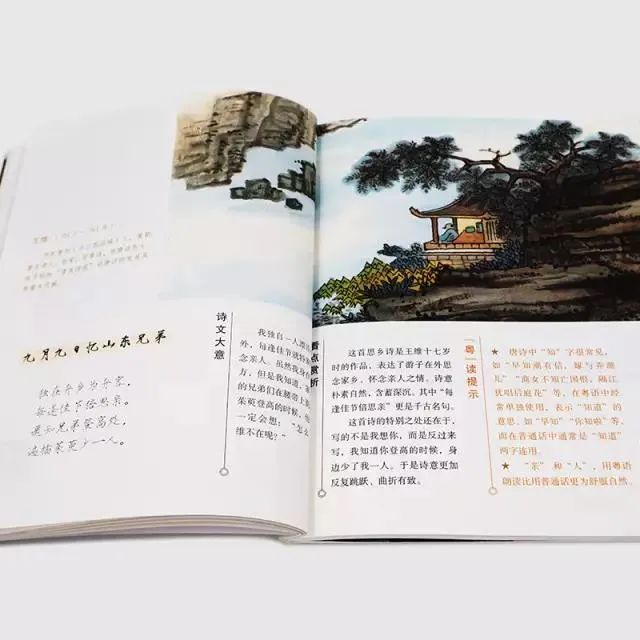 九月九日忆山东兄弟
独在异乡为异客，
每逢佳节倍思亲。
遥知兄弟登高处，
遍插茱萸少一人。
诗文大意
我独自一人漂
外，每逢佳节就特
念亲人。虽然我身
方，但是我知道，
的兄弟们在腰带上
朱萸登高的时候，
一定会想：“怎么
维不在呢？”
看点赏析
这首思乡诗是王维十七岁
时的作品，表达了游子在外思
念家乡，怀念亲人之情。诗意
朴素自然，含蓄深沉。其中“每
逢佳节倍思亲”更是千古名句。
这首诗的特别之处还在于，
写的不是我想你，而是反过来
写，我知道你登高的时候，身
边少了我一人。于是诗意更加
反复跳跃、曲折有致。
「粤」读提示
★ 唐诗中“知”字很常见，
如“早知潮有信，嫁与弄潮
儿”“商女不知亡国恨，隔江
犹唱后庭花”等，在粤语中经
常单独使用，表示“知道”的
意思，如“早知”“你知啦”等，
而在普通话中通常是“知道”
两字连用。
★ “亲”和“人”，用粤语
朗读比用普通话更为舒服自然。